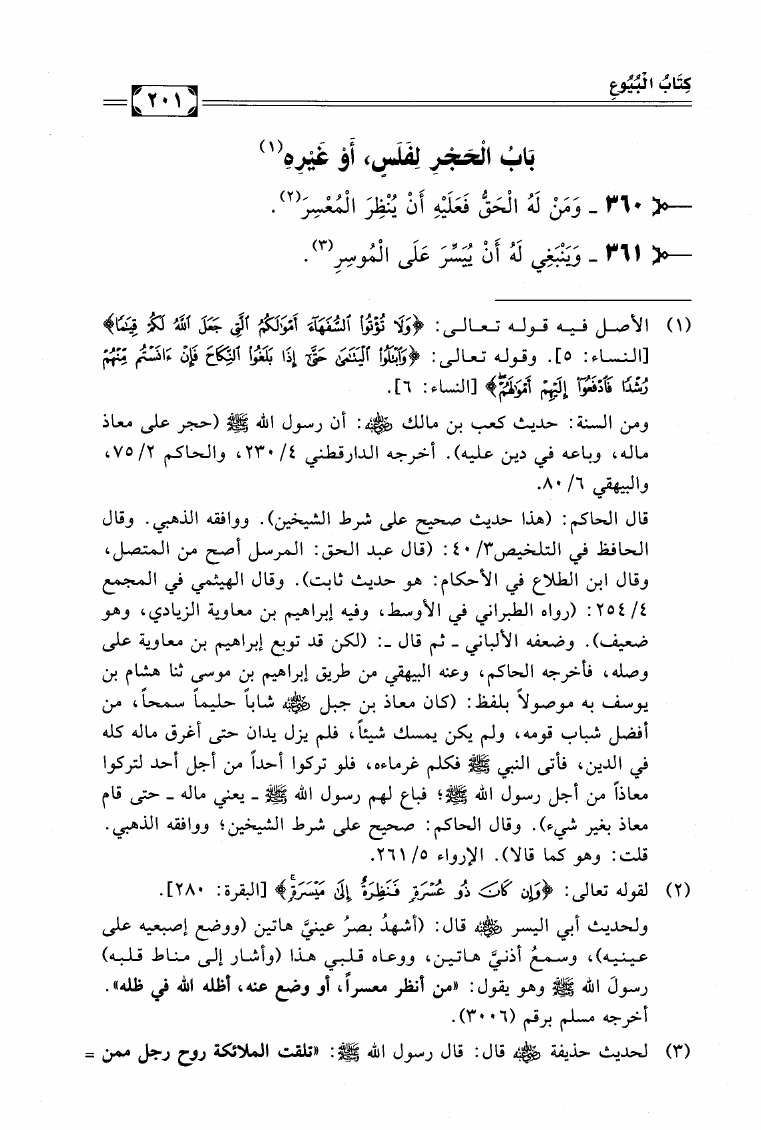 كِتَابُ الْبُيُوعِ
٢٠١
بَابُ الْحَجْرِ لِفَلَسٍ، أَوْ غَيْرِهِ(١)
٣٦٠ ـ وَمَنْ لَهُ الْحَقُّ فَعَلَيْهِ أَنْ يُنْظِرَ الْمُعْسِرَ(٢).
٣٦١ ـ وَيَنْبَغِي لَهُ أَنْ يُيَسِّرَ عَلَى الْمُوسِرِ(٣).
(١) الأصل فيه قوله تعالى: ﴿وَلَا تُؤْتُوا۟ ٱلسُّفَهَآءَ أَمْوَٰلَكُمُ ٱلَّتِى جَعَلَ ٱللَّهُ لَكُمْ قِيَٰمًا﴾
[النساء: ٥]. وقوله تعالى: ﴿وَٱبْتَلُوا۟ ٱلْيَتَٰمَىٰ حَتَّىٰٓ إِذَا بَلَغُوا۟ ٱلنِّكَاحَ فَإِنْ ءَانَسْتُم مِّنْهُمْ
رُشْدًا فَٱدْفَعُوٓا۟ إِلَيْهِمْ أَمْوَٰلَهُمْ ۖ﴾ [النساء: ٦].
ومن السنة: حديث كعب بن مالك رضي الله عنه: أن رسول الله ﷺ (حجر على معاذ
ماله، وباعه في دين عليه). أخرجه الدارقطني ٤/ ٢٣٠، والحاكم ٢/ ٧٥،
والبيهقي ٦/ ٨٠.
قال الحاكم: (هذا حديث صحيح على شرط الشيخين). ووافقه الذهبي. وقال
الحافظ في التلخيص٣/ ٤٠: (قال عبد الحق: المرسل أصح من المتصل،
وقال ابن الطلاع في الأحكام: هو حديث ثابت). وقال الهيثمي في المجمع
٤/ ٢٥٤: (رواه الطبراني في الأوسط، وفيه إبراهيم بن معاوية الزيادي، وهو
ضعيف). وضعفه الألباني ـ ثم قال ـ: (لكن قد توبع إبراهيم بن معاوية على
وصله، فأخرجه الحاكم، وعنه البيهقي من طريق إبراهيم بن موسى ثنا هشام بن
يوسف به موصولاً بلفظ: (كان معاذ بن جبل رضي الله عنه شاباً حليماً سمحاً، من
أفضل شباب قومه، ولم يكن يمسك شيئاً، فلم يزل يدان حتى أغرق ماله كله
في الدين، فأتى النبي ﷺ فكلم غرماءه، فلو تركوا أحداً من أجل أحد لتركوا
معاذاً من أجل رسول الله ﷺ؛ فباع لهم رسول الله ﷺ ـ يعني ماله ـ حتى قام
معاذ بغير شيء). وقال الحاكم: صحيح على شرط الشيخين؛ ووافقه الذهبي.
قلت: وهو كما قالا). الإرواء ٥/ ٢٦١.
(٢) لقوله تعالى: ﴿وَإِن كَانَ ذُو عُسْرَةٍ فَنَظِرَةٌ إِلَىٰ مَيْسَرَةٍ ۚ﴾ [البقرة: ٢٨٠].
ولحديث أبي اليسر رضي الله عنه قال: (أشهدُ بصرُ عينيَّ هاتين (ووضع إصبعيه على
عينيه)، وسمعُ أذنيَّ هاتين، ووعاه قلبي هذا (وأشار إلى مناط قلبه)
رسولَ الله ﷺ وهو يقول: «من أنظر معسراً، أو وضع عنه، أظله الله في ظله».
أخرجه مسلم برقم (٣٠٠٦).
(٣) لحديث حذيفة رضي الله عنه قال: قال رسول الله ﷺ: «تلقت الملائكة روح رجل ممن =